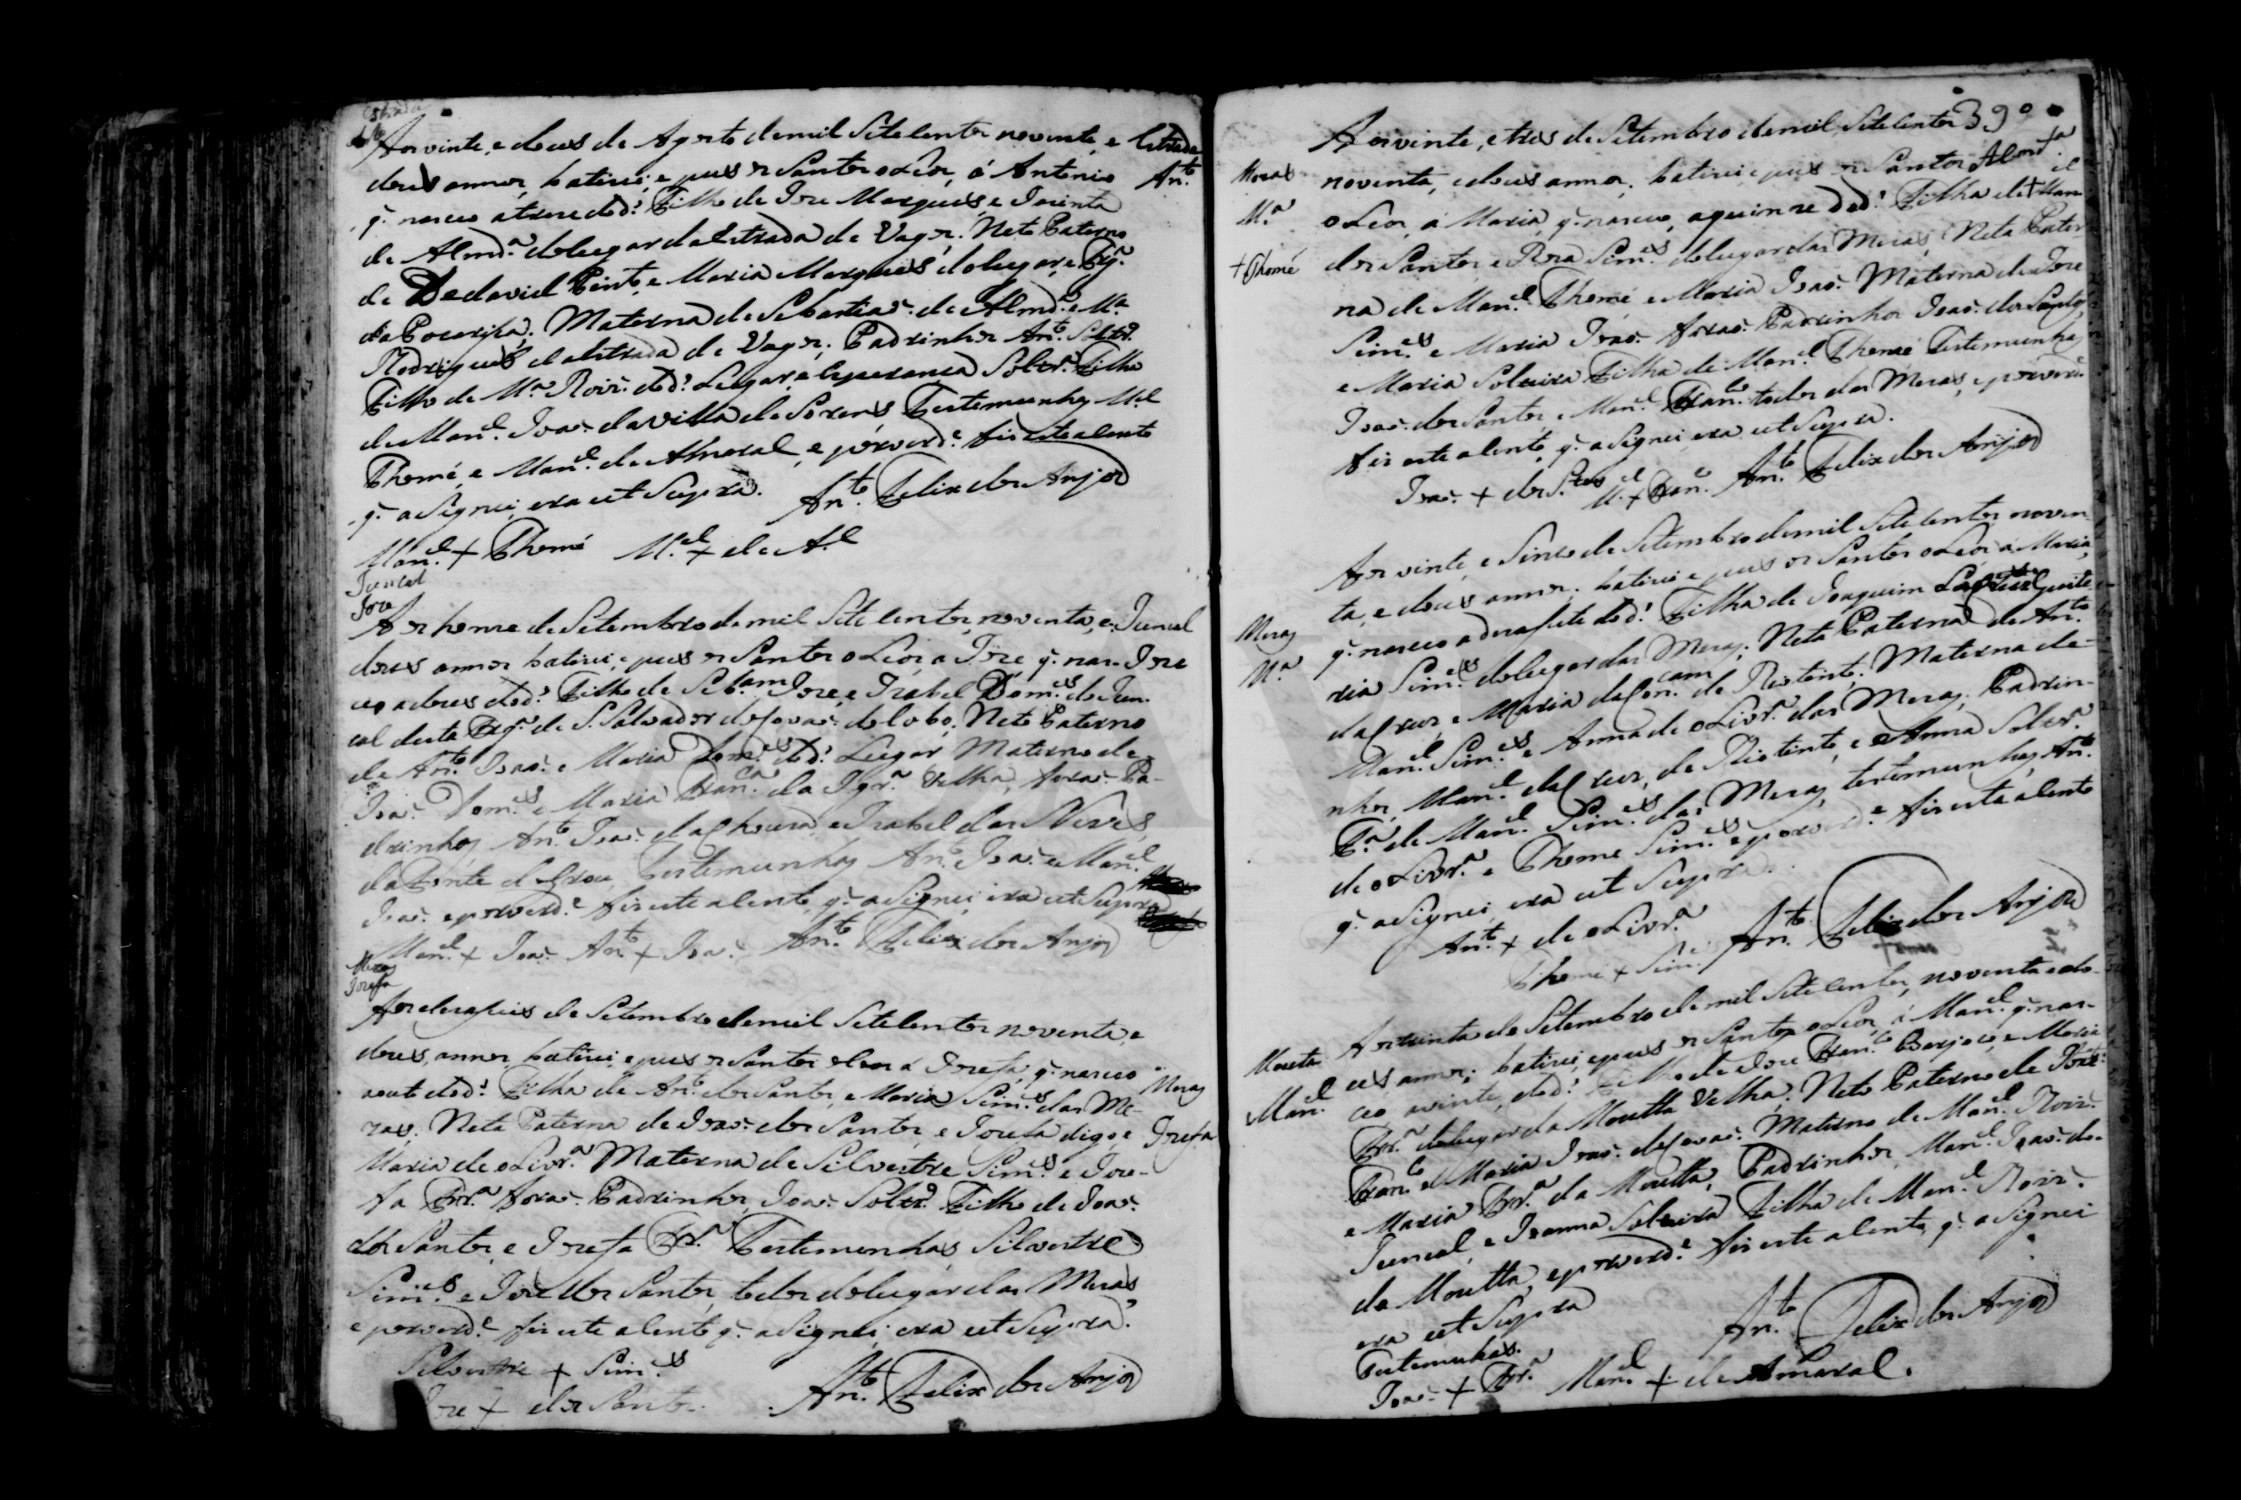 Estrada
Aos vinte, e dous de Agosto de mil Setecentos noventa, e Estrada
dous annos, batizei, e pus os Santos oLeos, á Antonio An.to
q. nasceo a treze do d.o Filho de Joze Marques, e Jacinta
de Almd.a do lugar da Estrada de Vagos; Neto Paterno
de David Pinto, e Maria Marques, do lugar, e Frg.a
da Pocariça; Materno de Sebastiaõ de Almd.a e M.a
Rodrigues da Estrada de Vagos; Padrinhos An.to Soltr.o
Filho de M.a Roiz. do d.o Lugar, e Esperança Soltr.a Filha
de Man.el Joaõ da Villa de Sorens Testemunhas M.el
Thomé, e Man.el de Amaral, e por verd.e fis este asento
q. asignei, era ut Supra. An.to Felix dos Anjos
Man.el + Thomé M.el + de A.l
Juncal
Joze
Aos honze de Setembro de mil Sete centos, noventa, e Juncal
dous annos batizei, e pus os Santos oLeos a Joze q. nas- Joze
ceo a dous do d.o Filho de Seb.am Joze, e Izabel Dom.es do Jun-
cal desta Frg.a de S. Salvador de Covaõ do lobo; Neto Paterno
de An.to Joaõ e Maria Dom.es do d.o Lugar Materno de
Joaõ Dom.es e Maria Fran.ca da Igr.a Velha, foraõ Pa-
drinhos An.to Joaõ da Chouza e Izabel das Neves
da Ponte de Testemunhas An.to Joaõ e Man.el
Joaõ e por verd.e fis este asento, q. asignei, era ut Supra
Man.el + Joaõ An.to + Joaõ An.to Felix dos Anjos
Mezas
Jozefa
Aos dezaseis de Setembro de mil Setecentos noventa e
dous, annos, batizei, e pus os Santos oleos á Jozefa, q. nasceo
aoute do d.o Filha de An.to dos Santos, e Maria Sim.es das Me- Mezas
zas; Neta Paterna de Joaõ dos Santos, e Jozefa digo, e Jozefa
Maria de oLivr.a Materna de Silvestre Sim.es e Joze-
fa Frr.a foraõ Padrinhos, Joaõ Soltr.o Filho de Joaõ
dos Santos, e Jozefa Frr.a Testemunhas Silvestre
Sim.es e Joze dos Santos, todos do lugar das Mezas,
e por verd.e fis este asento q. asignei, era ut Supra.
Silvestre + Sim.es
Joze + dos Santos. An.to Felix dos Anjos
390
Aos vinte, e tres de Setembro de mil Setecentos
Mezas noventa, e dous annos, batizei, e pus os Santos
M.a oLeos, á Maria, q. nasceo, a quinze do d.o Filha de + Man.el
+ Thomé dos Santos, e Roza Sim.es do lugar das Mezas; Neta Pater-
na de Man.el Thomé e Maria Joaõ Materna de Joze
Sim.es e Maria Joaõ foraõ Padrinhos Joaõ dos Santos,
e Maria Solteira Filha de Man.el Thomé Testemunhas
Joaõ dos Santos, e Man.el Fran.co todos das Mezas, e por verd.e
fis este asento, q. asignei, era ut Supra.
Joaõ + dos S.tos M.el + Fran.co An.to Felix dos Anjos
Aos vinte, e Sinco de Setembro de mil Sete centos noven-
ta, e dous annos, batizei e pus os Santos oLeos á Maria
Mezas q. nasceo a dezasete do d.o Filha de Joaquim
M.a ria Sim.es do lugar das Mezas; Neta Paterna de An.to
da Cruz, e Maria da Con.cam de Rio tinto; Materna de
Man.el Sim.es e Anna de oLivr.a das Mezas; Padri-
nhos, Man.el da Cruz, de Riotinto, e Anna Solter.a
F.a de Man.el Sim.es das Mezas, testemunhas, An.to
de oLivr.a e Thome Sim.es e por verd.e fis este asento
q. asignei, era ut Supra.
An.to + de oLivr.a An.to Felix dos Anjos
Thome + Sim.es
Aos trinta de Setembro de mil Setecentos, noventa e do-
Moutta us, annos; batizei, e pus os Santos oLeos, á Man.el q. nas-
Man.el ceo a vinte, do d.o Filho de Joze Fran.co e Maria
Frr.a do lugar da Moutta Velha; Neto Paterno de
Fran.co e Maria Joaõ de Covaõ; Materno de Man.el Roiz.
e Maria Frr.a da Moutta; Padrinhos, Man.el Joaõ do
Juncal, e Joanna Solteira Filha de Man.el Roiz.
da Moutta, e por verd.e fis este asento, q. asignei
era ut Supra An.to Felix dos Anjos
Testemunhas.
Joaõ + Frr.a Man.el + de Amaral.